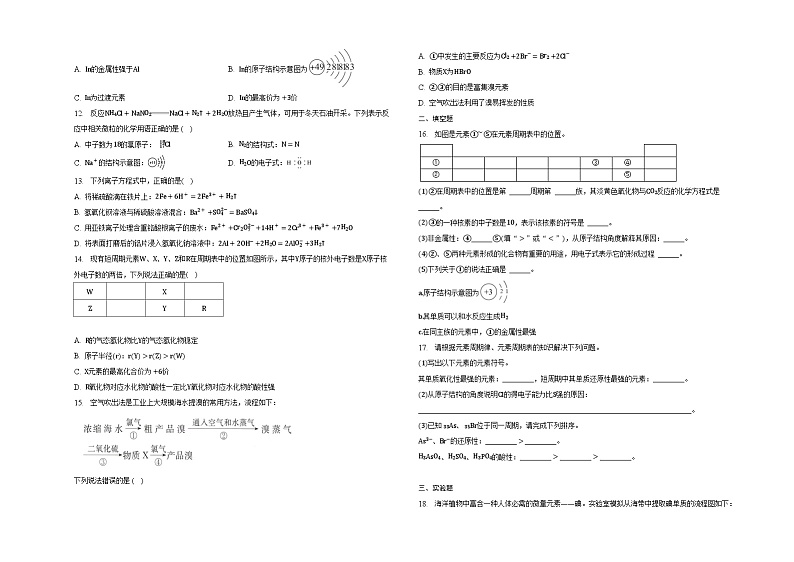 A. In的金属性强于Al B. In的原子结构示意图为 +49 2 8 18 18 3
C. In为过渡元素 D. In的最高价为＋3价
12. 反应NH₄Cl＋NaNO₂══NaCl＋N₂↑＋2H₂O放热且产生气体，可用于冬天石油开采。下列表示反
应中相关微粒的化学用语正确的是（ ）
A. 中子数为18的氯原子： Cl B. N₂的结构式：N＝N
C. Na⁺的结构示意图： D. H₂O的电子式：H:O:H
13. 下列离子方程式中，正确的是( )
A. 将稀硫酸滴在铁片上：2Fe＋6H⁺＝2Fe³⁺＋H₂↑
B. 氢氧化钡溶液与稀硫酸溶液混合：Ba²⁺＋SO₄²⁻＝BaSO₄↓
C. 用亚铁离子处理含重铬酸根离子的废水：Fe²⁺＋Cr₂O₇²⁻＋14H⁺＝2Cr³⁺＋Fe³⁺＋7H₂O
D. 将表面打磨后的铝片浸入氢氧化钠溶液中：2Al＋2OH⁻＋2H₂O＝2AlO₂⁻＋3H₂↑
14. 现有短周期元素W、X、Y、Z和R在周期表中的位置如图所示，其中Y原子的核外电子数是X原子核
外电子数的两倍，下列说法正确的是( )
W X
Z Y R
A. R的气态氢化物比Y的气态氢化物稳定
B. 原子半径(r)：r(Y)＞r(Z)＞r(W)
C. X元素的最高化合价为＋6价
D. R氧化物对应水化物的酸性一定比Y氧化物对应水化物的酸性强
15. 空气吹出法是工业上大规模海水提溴的常用方法，流程如下：
浓缩海水 氯气 ① 粗产品溴 通入空气和水蒸气 ② 溴蒸气
二氧化硫 ③ 物质X 氯气 ④ 产品溴
下列说法错误的是 ( )
A. ①中发生的主要反应为Cl₂＋2Br⁻＝Br₂＋2Cl⁻
B. 物质X为HBrO
C. ②③的目的是富集溴元素
D. 空气吹出法利用了溴易挥发的性质
二、填空题
16. 如图是元素①～⑤在元素周期表中的位置。
① ③ ④
② ⑤
(1)②在周期表中的位置是第 ______周期第 ______族，其淡黄色氧化物与CO₂反应的化学方程式是
______。
(2)③的一种核素的中子数是10，表示该核素的符号是 ______。
(3)非金属性：④______⑤(填“＞”或“＜”)，从原子结构角度解释其原因：______。
(4)②、⑤两种元素形成的化合物有重要的用途，用电子式表示它的形成过程 ______。
(5)下列关于①的说法正确是 ______。
a.原子结构示意图为 +3 2 1
b.其单质可以和水反应生成H₂
c.在同主族的元素中，①的金属性最强
17. 请根据元素周期律、元素周期表的知识解决下列问题。
(1)写出以下元素的元素符号。
其单质氧化性最强的元素：________，短周期中其单质还原性最强的元素：________。
(2)从原子结构的角度说明Cl的得电子能力比S强的原因：
________________________________________________。
(3)已知₃₃As、₃₅Br位于同一周期，请完成下列排序。
As³⁻、Br⁻的还原性：________＞________。
H₃AsO₄、H₂SO₄、H₃PO₄的酸性：________＞________＞________。
三、实验题
18. 海洋植物中富含一种人体必需的微量元素——碘。实验室模拟从海带中提取碘单质的流程图如下：